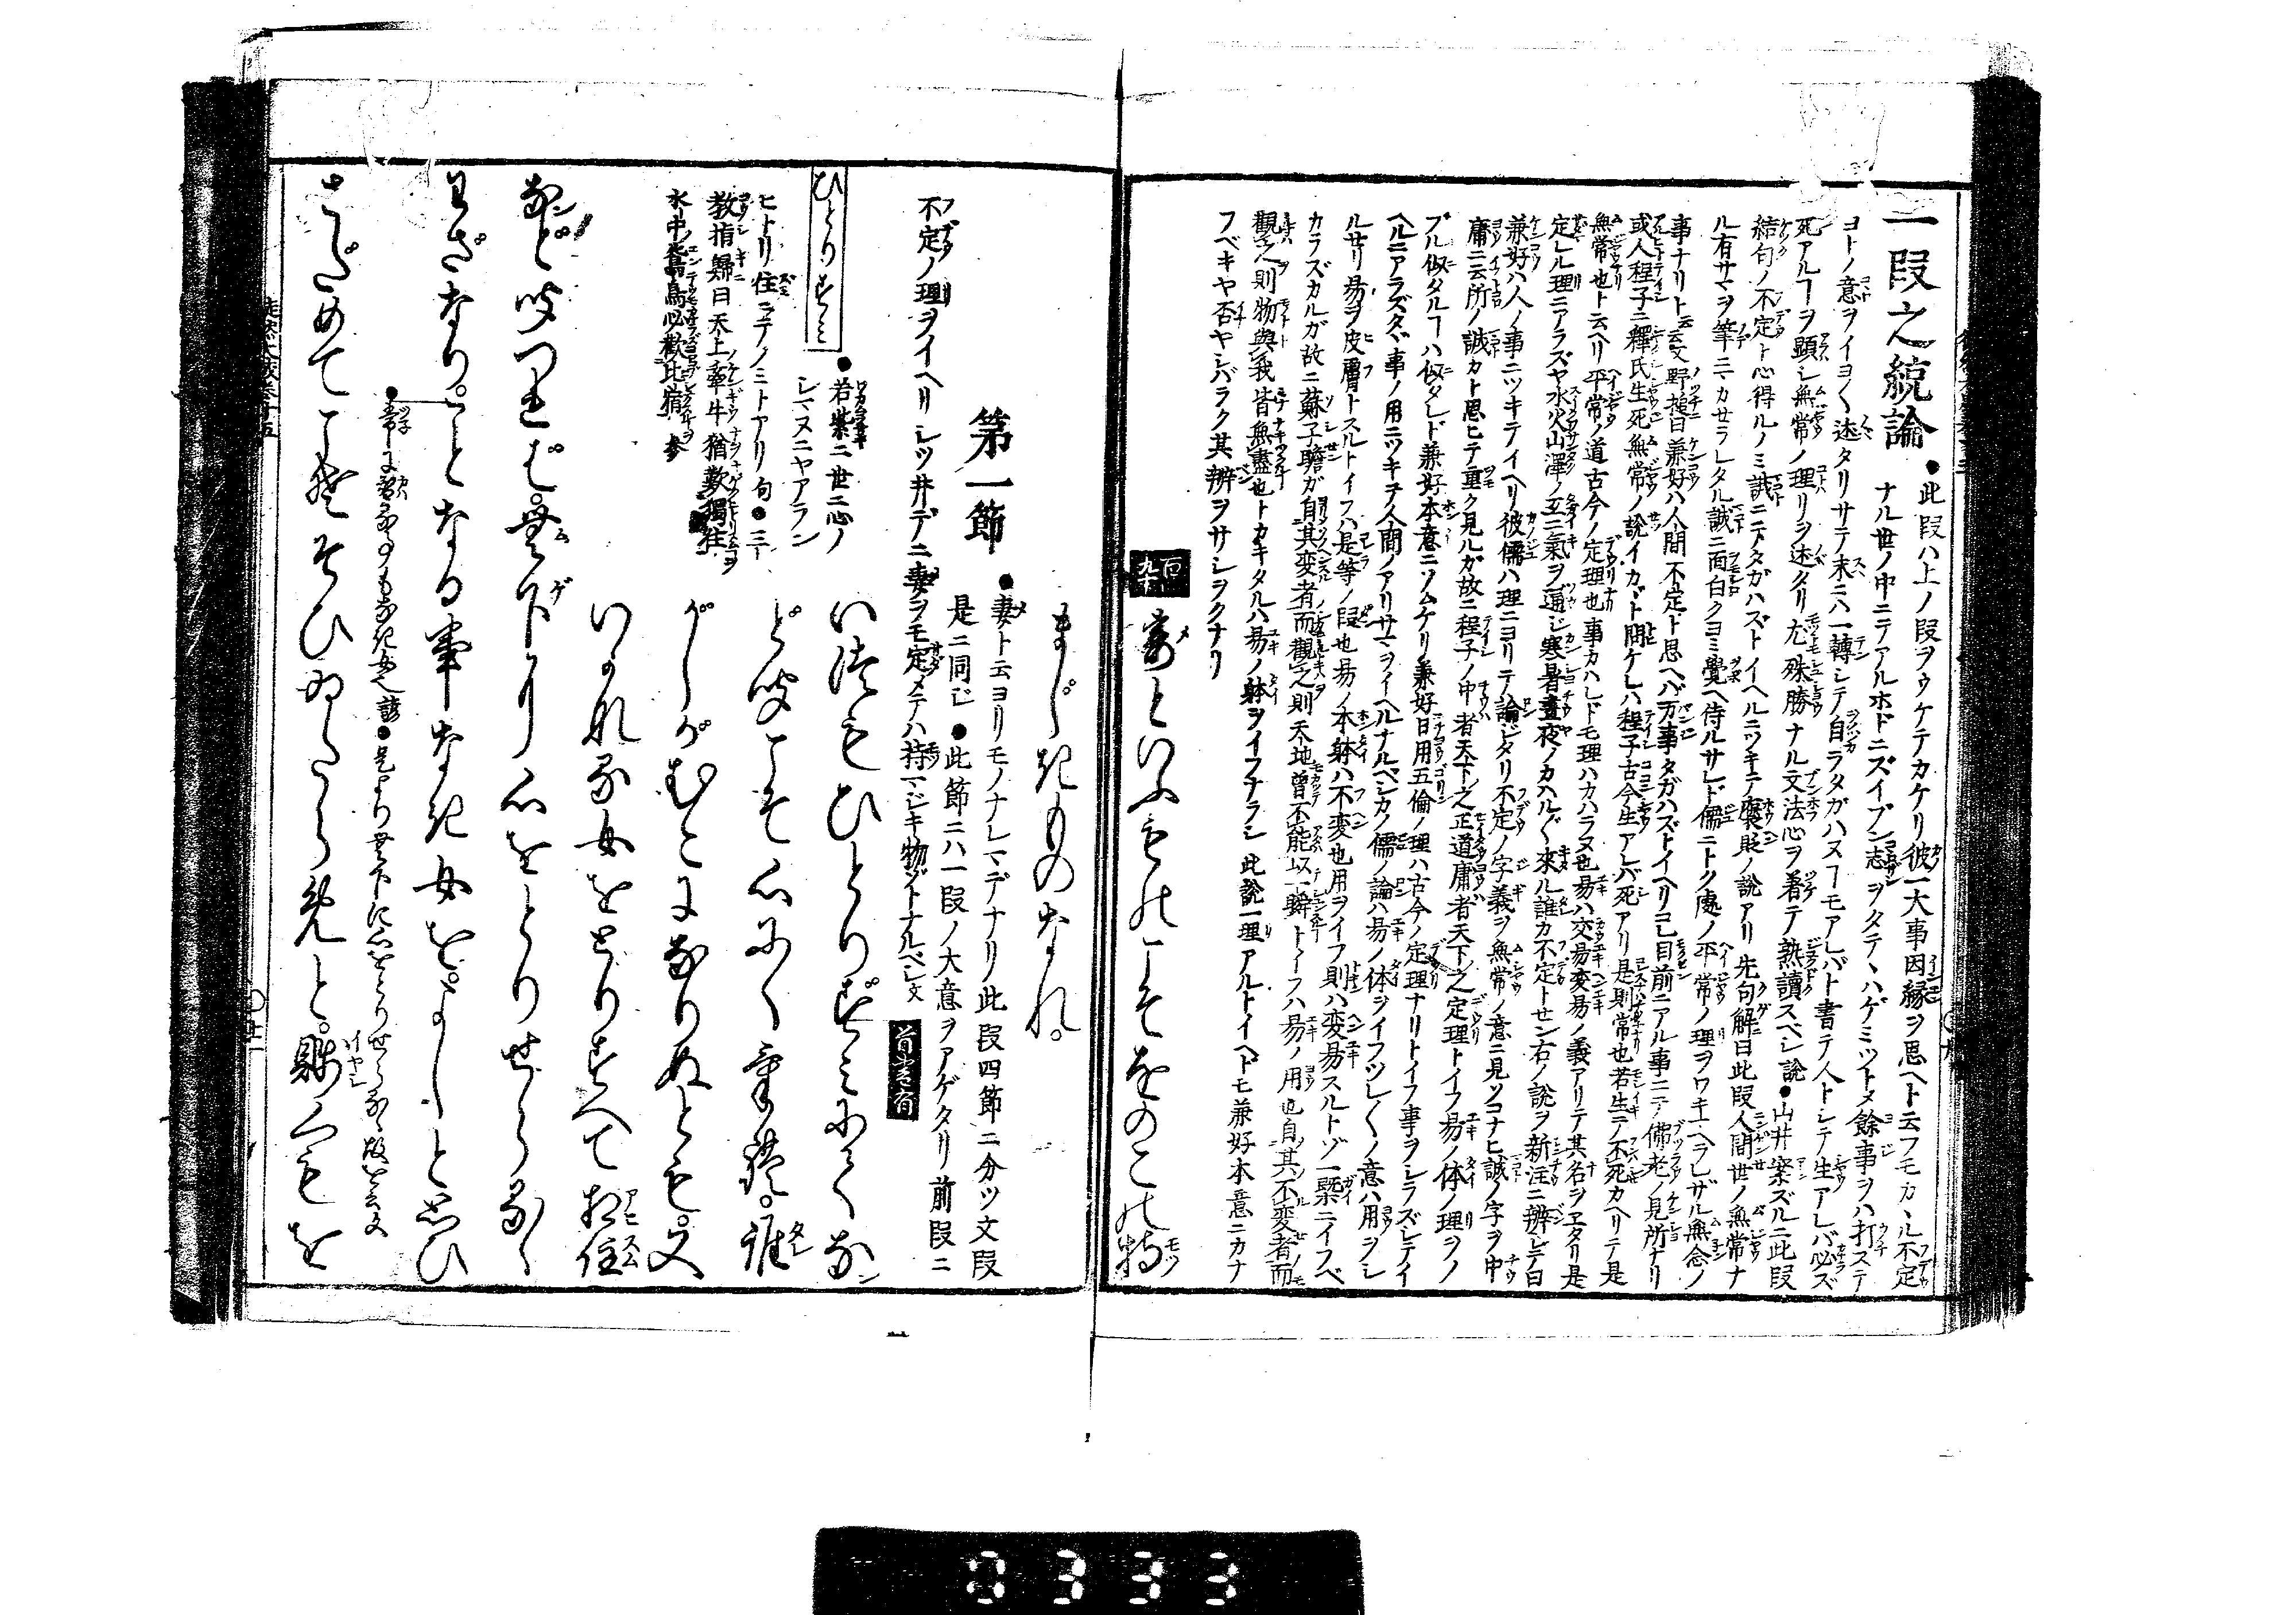 一段之統論
●此段ハ上ノ段ヲウケテカケリ彼一大事因縁ヲ思ヘト云フモカヽル不定
ナル世ノ中ニテアルホドニズイブン志ヲタテヽハゲミツトメ餘事ヲハ打ステ
ヨトノ意ヲイヨ〱述タリサテ末ニハ一轉シテ自ラタガハヌヿモアレバト書テ人トシテ生アレバ必ズ
死アルヿヲ顕シ無常ノ理リヲ述タリ尤殊勝ナル文法心ヲ着テ熟讀スベシ説●山井案ズルニ此段
結句ノ不定ト心得ルノミ誠ニテタガハズトイヘルニツキテ褒貶ノ説アリ先句解曰此段人間世ノ無常ナ
ル有サマヲ筆ニマカセラレタル誠ニ面白クヨミ覺ヘ侍ルサレド儒ニトク處ノ平常ノ理ヲワキヘラレザル無念ノ
事ナリト云云又野槌曰兼好ハ人間不定ト思ヘバ万事タガハズトイヘリコレ目前ニアル事ニテ佛老ノ見所ナリ
或人程子ニ釋氏生死無常ノ説イカヾト問ケレハ程子古今生アレバ死アリ是則常也若生テ不死カヘリテ是
無常也ト云ヘリ平常ノ道古今ノ定理也事カハレドモ理ハカハラヌ也易ハ交易変易ノ義アリテ其名ヲエタリ是
定レル理ニアラズヤ水火山澤ノ互ニ氣ヲ通ジ寒暑晝夜ノカハル〱來ル誰カ不定トセン右ノ説ヲ新注ニ辨シテ曰
兼好ハ人ノ事ニツキテイヘリ彼儒ハ理ニヨリテ論ジタリ不定ノ字義ヲ無常ノ意ニ見ソコナヒ誠ノ字ヲ中
庸ニ云所ノ誠カト思ヒテ重ク見ルガ故ニ程子ノ中者天下之正道庸者天下之定理トイフ易ノ体ノ理ヲノ
ブル似タルヿハ似タレド兼好本意ニソムケリ兼好日用五倫ノ理ハ古今ノ定理ナリトイフ事ヲシラズシテイ
ヘルニアラズタヾ事ノ用ニツキテ人間ノアリサマヲイヘルナルベシカノ儒ノ論ハ易ノ体ヲイフツレ〱ノ意ハ用ヲシ
ルせリ易ヲ皮膚トスルトイフハ是等ノ段也易ノ本躰ハ不変也用ヲイフ則ハ変易スルトゾ一槩ニイフベ
カラズカルガ故ニ蘇子瞻ガ自其変者而觀之則天地曽不能以一瞬トイフハ易ノ用也自其不変者而
觀之則物與我皆無盡也トカキタルハ易ノ躰ヲイフナラシ此説一理アルトイヘドモ兼好本意ニカナ
フベキヤ否ヤシバラク其辨ヲサシヲクナリ
百九十
妻といふものこそをのこの持
まじきものなれ。
第一節
●妻ト云ヨリモノナレマデナリ此段四節ニ分ツ文段
是ニ同ジ●此節ニハ一段ノ大意ヲアゲタリ前段ニ
不定ノ理ヲイヘリシツ井デニ妻ヲモ定メテハ持マジキ物ゾトナルベシ文
いつもひとりずみにてなん
ひとりずみ
●若紫ニ世ニ心ノ
シマヌニヤアラン
ヒトリ住ニテノミトアリ句●三
教指歸曰天上牽牛猶歎獨住
水中鳥必歡比宿参
ど聞こそ心にくけれ。誰
がしがむこになりぬとも。又
いかなる女をとりすへて相住
など聞つれば。無下に心をとりせらるゝ
わざなり。ことなる事なき女を。よしと思ひ
さだめてこそそひゐたらめと。賤くも